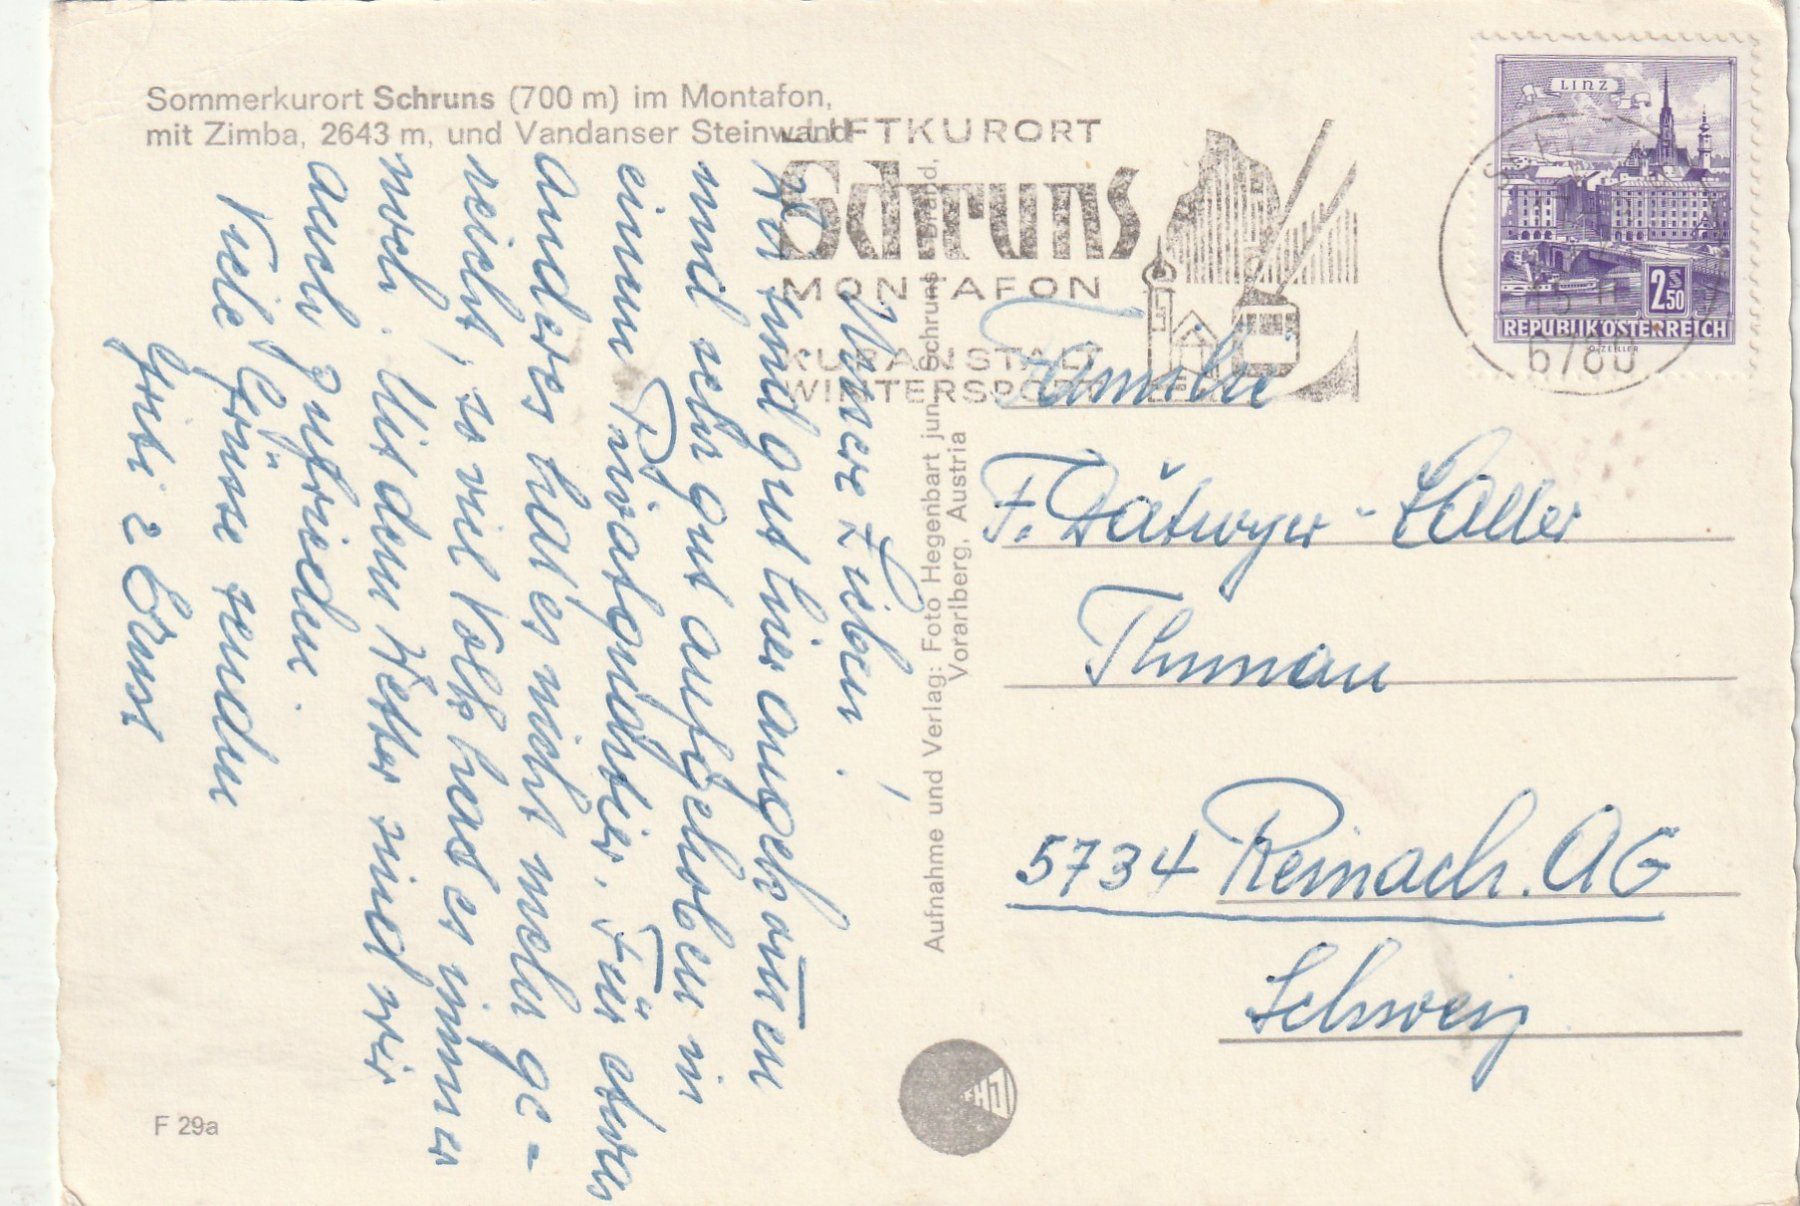 Sommerkurort Schruns (700 m) im Montafon,
mit Zimba, 2643 m, und Vandanser Steinwand
LUFTKURORT
Schruns
MONTAFON
KURANSTALT
WINTERSPORT
LINZ
2.50 S
REPUBLIK ÖSTERREICH
6780
Unsere Lieben!
Wir sind gut hier angekommen
und sehr gut aufgehoben in
einem Privatquartier. Für etwas
anderes hat es nicht mehr ge-
reicht, so viel Volk hat es immer
noch. Mit dem Wetter sind wir
auch zufrieden.
Viele Grüsse senden
& Ernst
Aufnahme und Verlag: Foto Hegenbart jun., Schruns - Brand,
Vorarlberg, Austria
Familie
F. Dätwyler-
5734 Reinach. AG
Schweiz
FHJ
F 29a